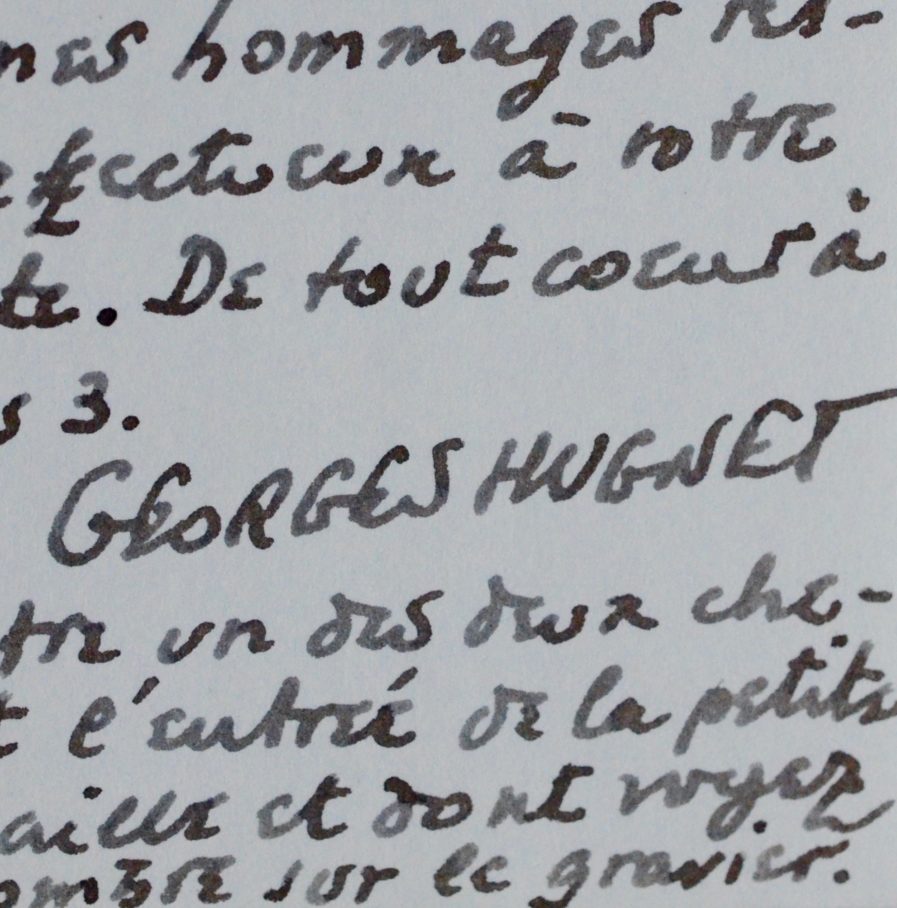 mes hommages res-
affectueux à votre
te. De tout coeur à
s 3.
GEORGES HUGNET
tre un des deux che-
t l'entrée de la petite
aille et dont voyez
ombre sur le gravier.